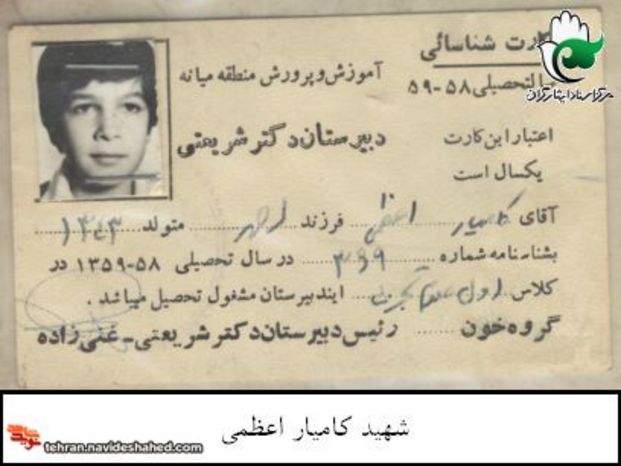 کارت شناسائی
سال تحصیلی ۵۸-۵۹
مرکز اسناد ایثارگران
آموزش و پرورش منطقه میانه
اعتبار این کارت
یکسال است
دبیرستان دکتر شریعتی
آقای کامیار اعظمی فرزند احمد متولد ۱۳۴۳
بشناسنامه شماره در سال تحصیلی ۵۸-۱۳۵۹ در
کلاس اول تجربی ایندبیرستان مشغول تحصیل میباشد.
گروه خون رئیس دبیرستان دکتر شریعتی - غنی زاده
شهید کامیار اعظمی
نوید شاهد
tehran.navideshahed.com